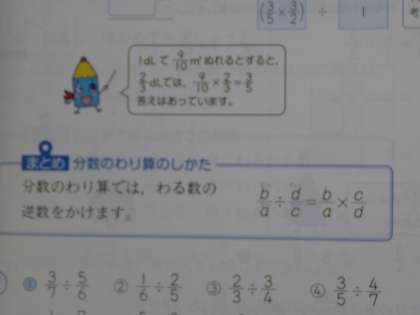 (3/5×3/2) ÷ 1
1dLで 9/10 m²ぬれるとすると、
2/3 dLでは、9/10×2/3=3/5
答えはあっています。
まとめ 分数のわり算のしかた
分数のわり算では、わる数の
逆数をかけます。
b/a÷d/c=b/a×c/d
① 3/7÷5/6 ② 1/6÷2/5 ③ 2/3÷3/4 ④ 3/5÷4/7